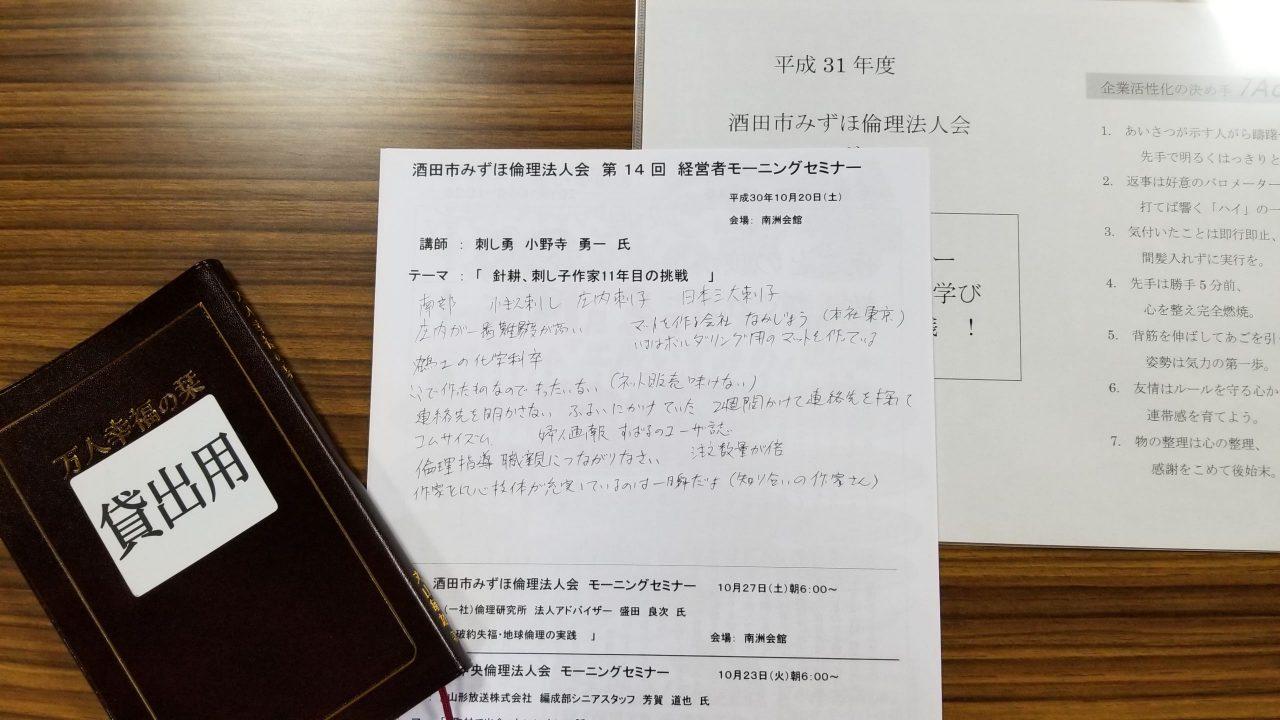 万人幸福の栞
貸出用
酒田市みずほ倫理法人会 第 14 回 経営者モーニングセミナー
平成30年10月20日(土)
会場: 南洲会館
講師 : 刺し勇 小野寺 勇一 氏
テーマ :「 針耕、刺し子作家11年目の挑戦 」
南部 庄内刺子 日本三大刺子
庄内が一番難易度が高い マットを作る会社 なかじょう (本社東京)
ボルダリング用のマットを作っている
鶴工の化学科卒
(ネット販売
連絡先を明かさない ふるいにかけていた 2週間かけて連絡先を探して
婦人画報 すばるのユーザ誌
倫理指導 職親につながりなさい 注文数量が倍
作家として心技体が充実しているのは一瞬だよ (知り合いの作家さん)
酒田市みずほ倫理法人会 モーニングセミナー 10月27日(土)朝6:00~
(一社)倫理研究所 法人アドバイザー 盛田 良次 氏
破約失福・地球倫理の実践 」 会場: 南洲会館
中央倫理法人会 モーニングセミナー 10月23日(火)朝6:00~
山形放送株式会社 編成部シニアスタッフ 芳賀 道也 氏
平成 31 年度
酒田市みずほ倫理法人会
ー
学び
！
企業活性化の決め手
1. あいさつが示す人がら躊躇
先手で明るくはっきりと
2. 返事は好意のバロメーター
打てば響く「ハイ」の一
3. 気付いたことは即行即止、
間髪入れずに実行を。
4. 先手は勝手 5 分前、
心を整え完全燃焼。
5. 背筋を伸ばしてあごを引
姿勢は気力の第一歩。
6. 友情はルールを守る心か
連帯感を育てよう。
7. 物の整理は心の整理、
感謝をこめて後始末。